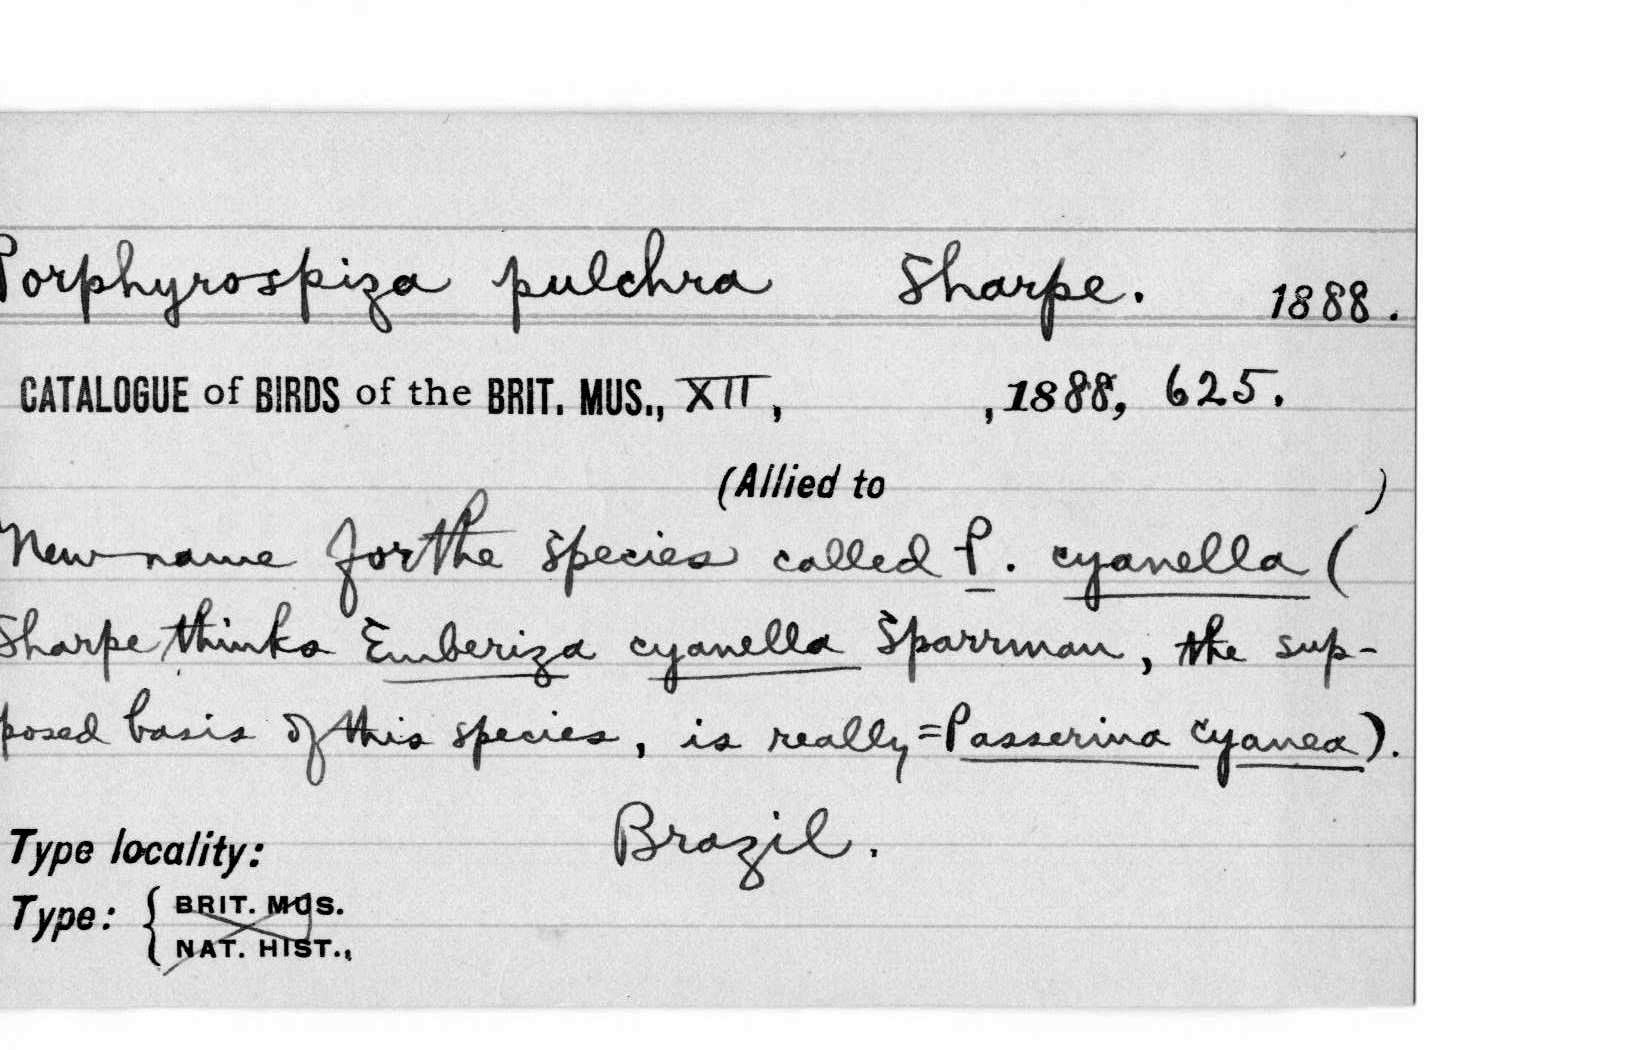 Porphyrospiza pulchra Sharpe. 1888.
CATALOGUE of BIRDS of the BRIT. MUS., XII, , 1888, 625.
(Allied to )
New name for the species called P. cyanella (
Sharpe thinks Emberiza cyanella Sparrman, the sup-
posed basis of this species, is really = Passerina cyanea).
Type locality: Brazil.
Type: { BRIT. MUS.
NAT. HIST.,